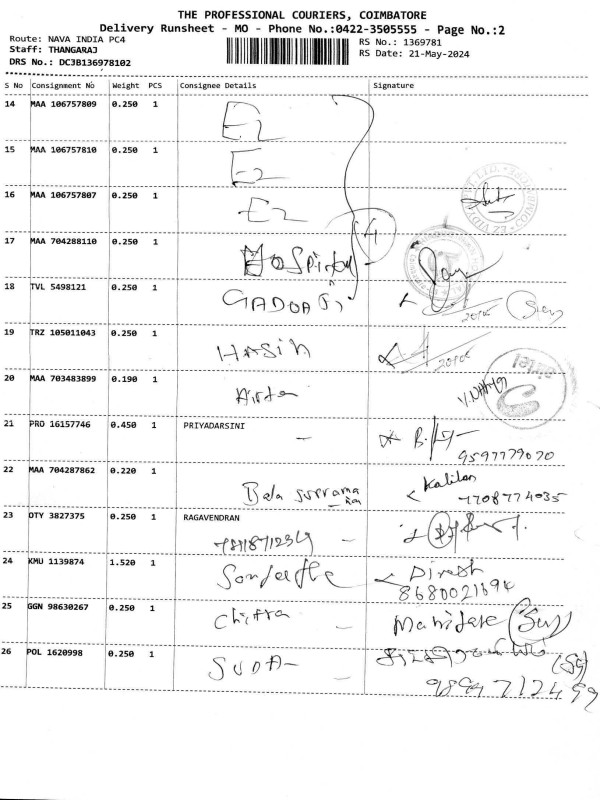 THE PROFESSIONAL COURIERS, COIMBATORE
Delivery Runsheet - MO - Phone No.:0422-3505555 - Page No.:2
Route: NAVA INDIA PC4
RS No.: 1369781
Staff: THANGARAJ
RS Date: 21-May-2024
DRS No.: DC3B136978102
S No Consignment No Weight PCS Consignee Details Signature
14 MAA 106757809 0.250 1
E2
15 MAA 106757810 0.250 1
E2
16 MAA 106757807 0.250 1
E2
17 MAA 704288110 0.250 1
Hospital
18 TVL 5498121 0.250 1
19 TRZ 105011043 0.250 1
HASIN
20 MAA 703483899 0.190 1
airtel
21 PRO 16157746 0.450 1 PRIYADARSINI
9597779070
22 MAA 704287862 0.220 1
Bala
Kalilan
7708774035
23 OTY 3827375 0.250 1 RAGAVENDRAN
24 KMU 1139874 1.520 1
Dinesh
8680021694
25 GGN 98630267 0.250 1
Chitra
26 POL 1620998 0.250 1
SUDA